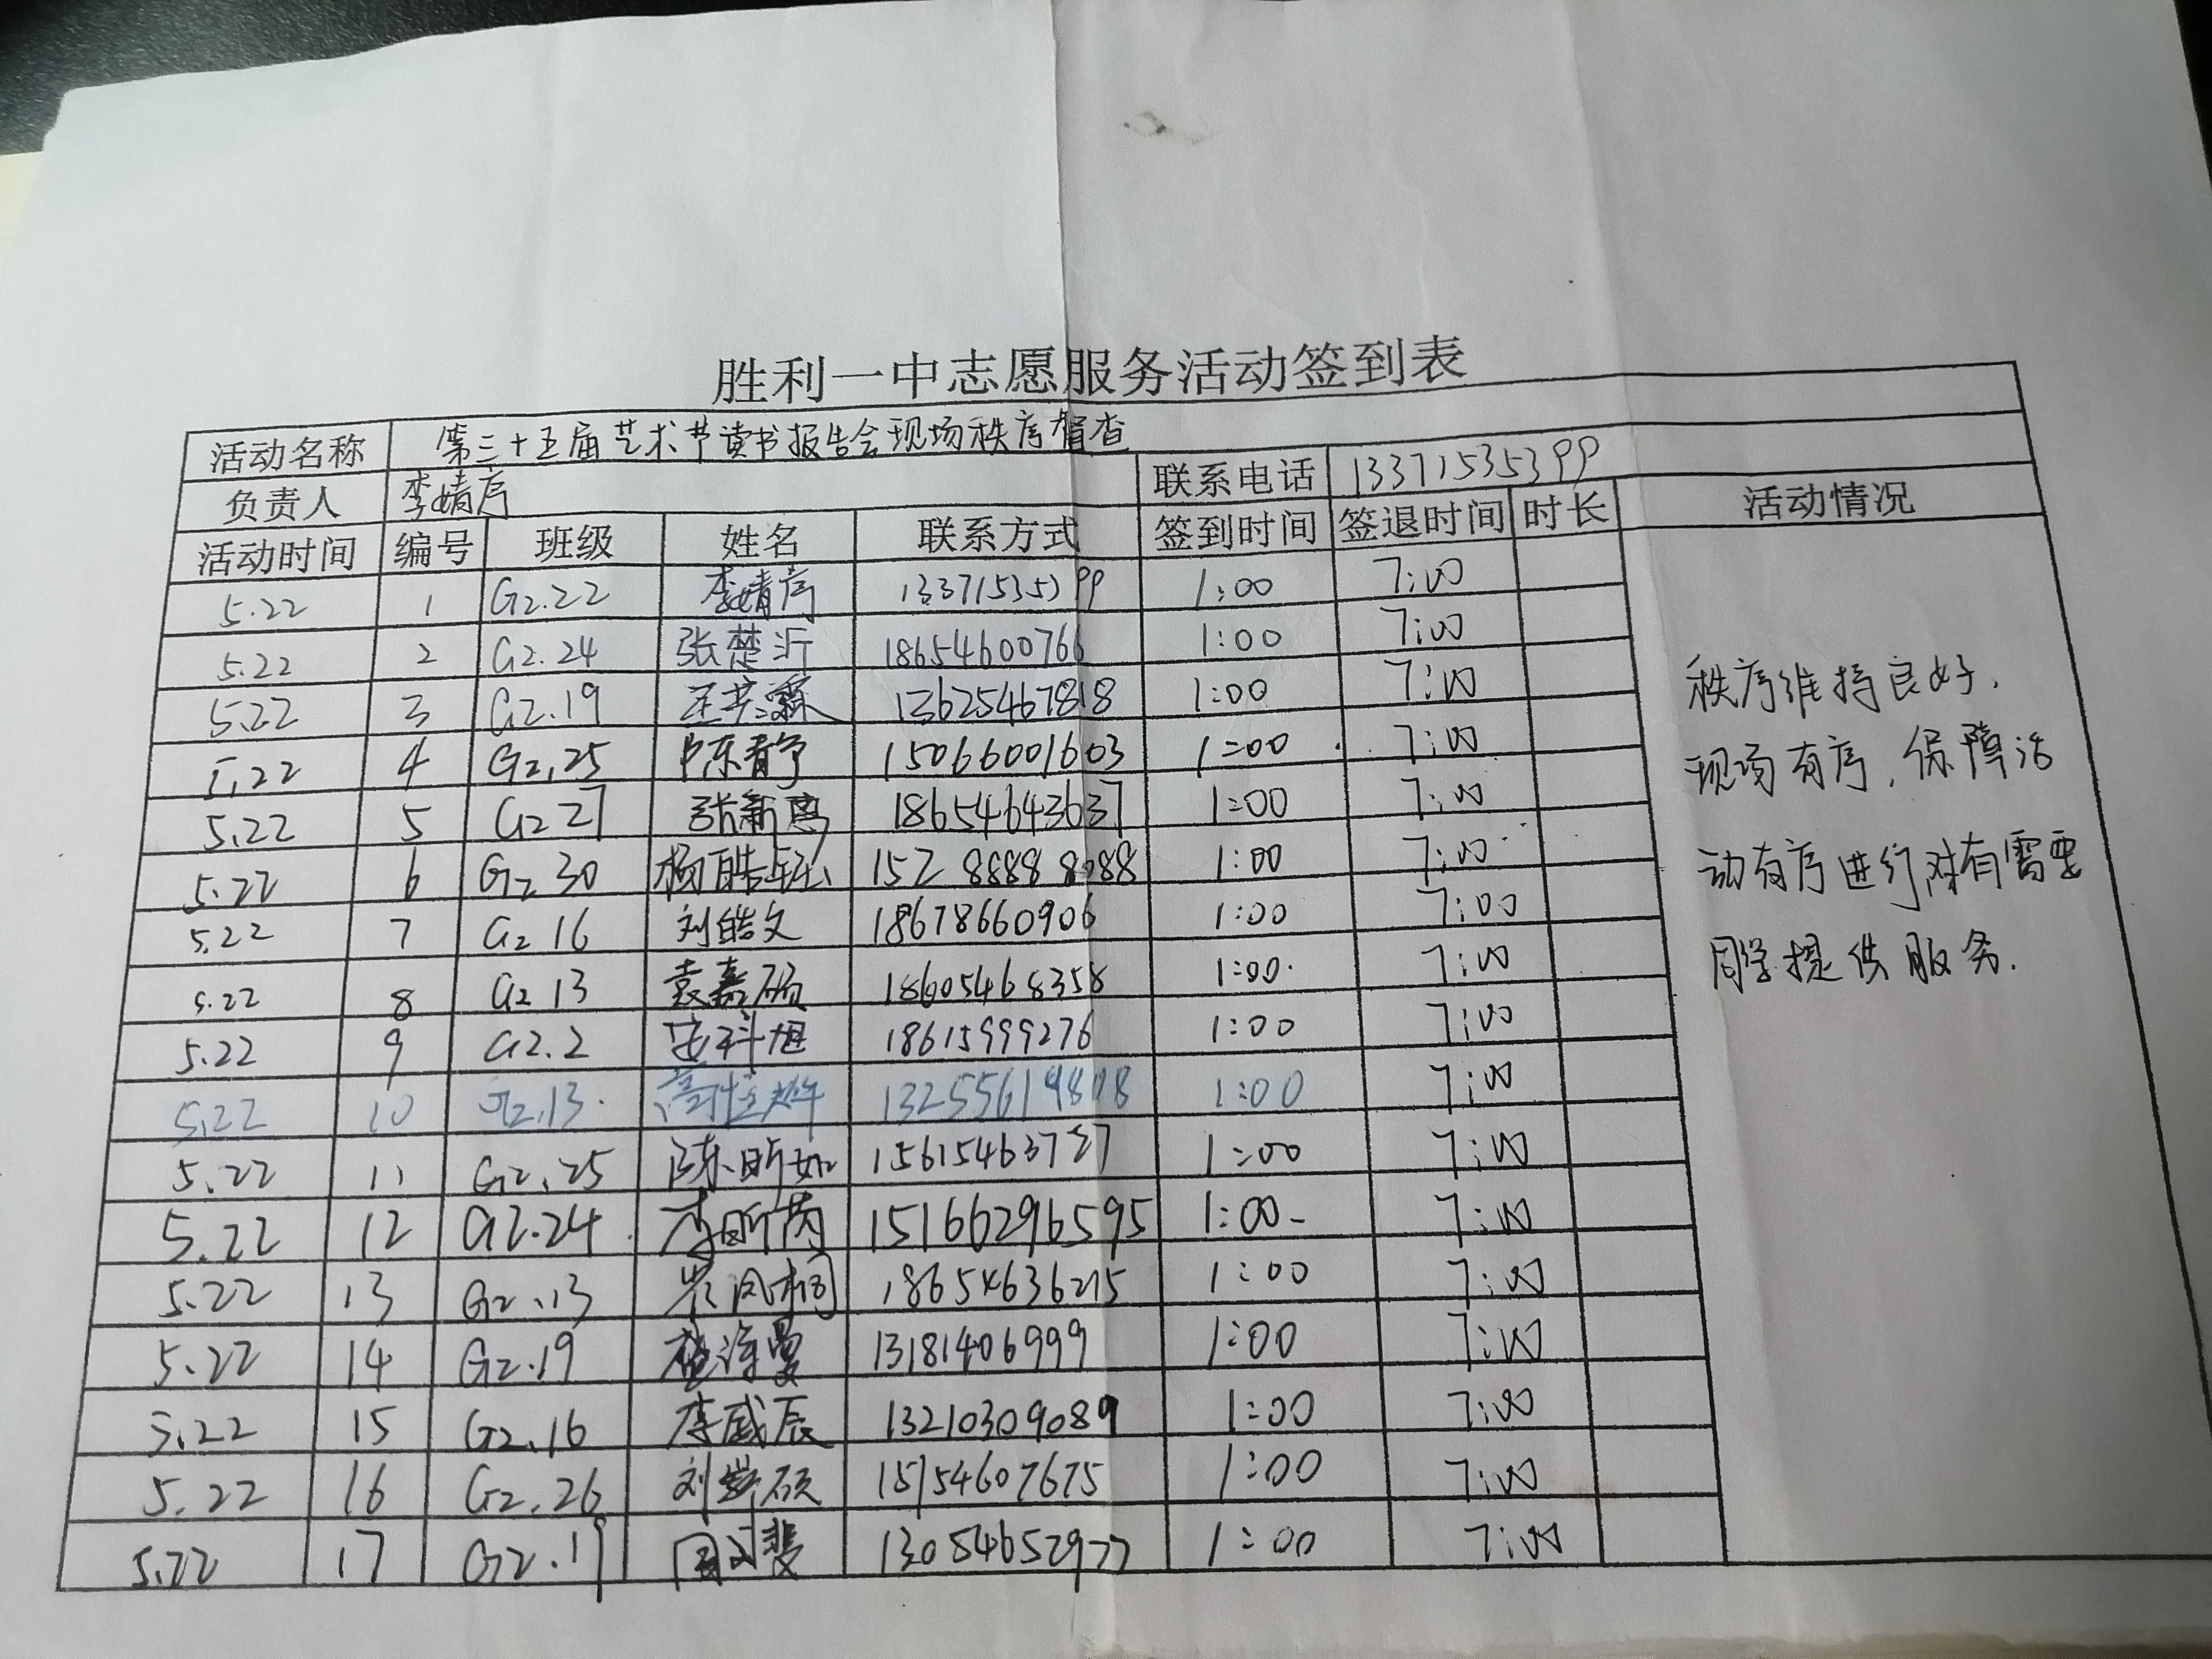 胜利一中志愿服务活动签到表
活动名称 第三十五届艺术节读书报告会现场秩序督查
负责人 李婧序 联系电话 13371535399
活动时间 编号 班级 姓名 联系方式 签到时间 签退时间 时长 活动情况
5.22 1 G2.22 李婧序 13371535399 1:00 7:00
5.22 2 G2.24 张楚沂 18654600766 1:00 7:00
5.22 3 G2.19 13625467818 1:00 7:00
5.22 4 G2.25 陈静 15066001603 1:00 7:00
5.22 5 G2 27 张新 18654643637 1:00 7:00
5.22 6 G2 30 杨皓 152 8888 8088 1:00 7:00
5.22 7 G2 16 刘皓文 18678660906 1:00 7:00
5.22 8 G2 13 袁嘉硕 18605468358 1:00 7:00
5.22 9 G2.2 安科旭 18615999276 1:00 7:00
5.22 10 G2.13 1:00 7:00
5.22 11 G2.25 陈昕如 15615463727 1:00 7:00
5.22 12 G2.24 李昕芮 15166296595 1:00 7:00
5.22 13 G2.13 18654636215 1:00 7:00
5.22 14 G2.19 13181406999 1:00 7:00
5.22 15 G2.16 李威辰 13210309089 1:00 7:00
5.22 16 G2.26 15154607675 1:00 7:00
5.22 17 G2.19 13054652977 1:00 7:00
秩序维持良好，
现场有序，保障活
动有序进行对有需要
同学提供服务.